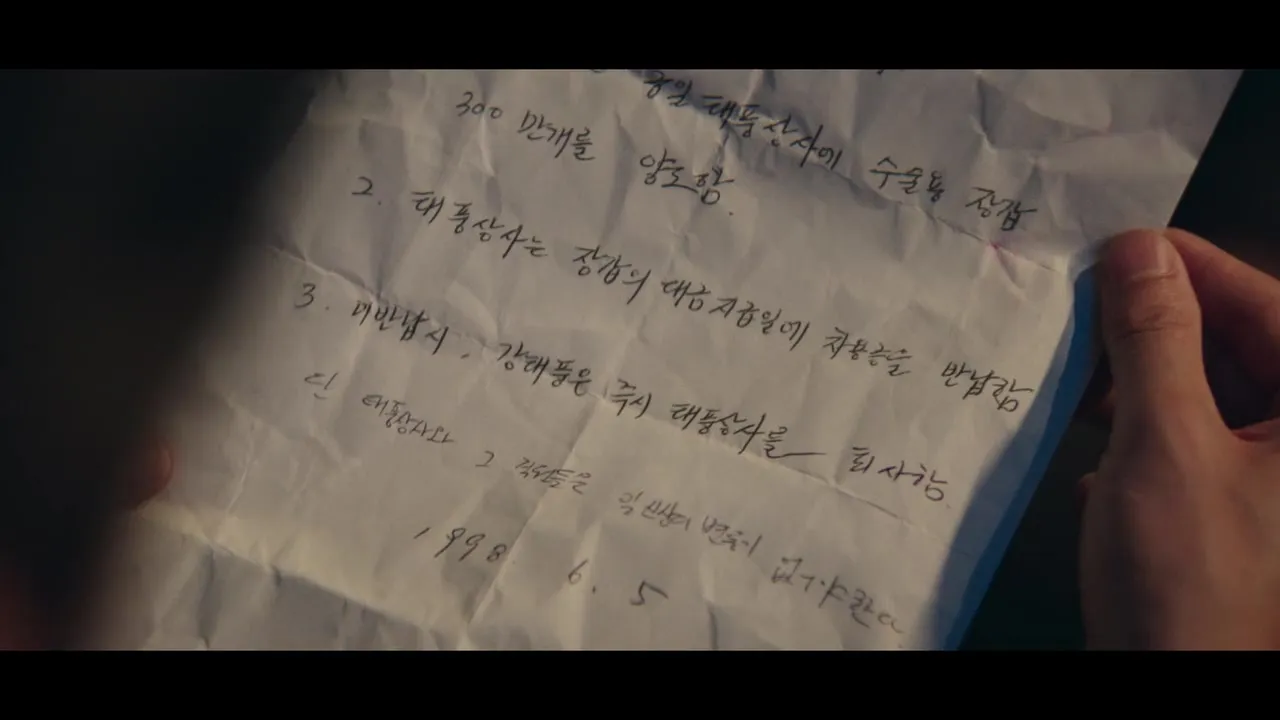 태풍상사에 수술용 장갑
300 만개를 양도함.
2. 태풍상사는 장갑의 대금지급일에 차용증을 반납함
3. 미반납시, 강태풍은 즉시 태풍상사를 퇴사함.
단 태풍상사와 그 직원들은 일신상의 변동이 없어야한다
1998. 6. 5